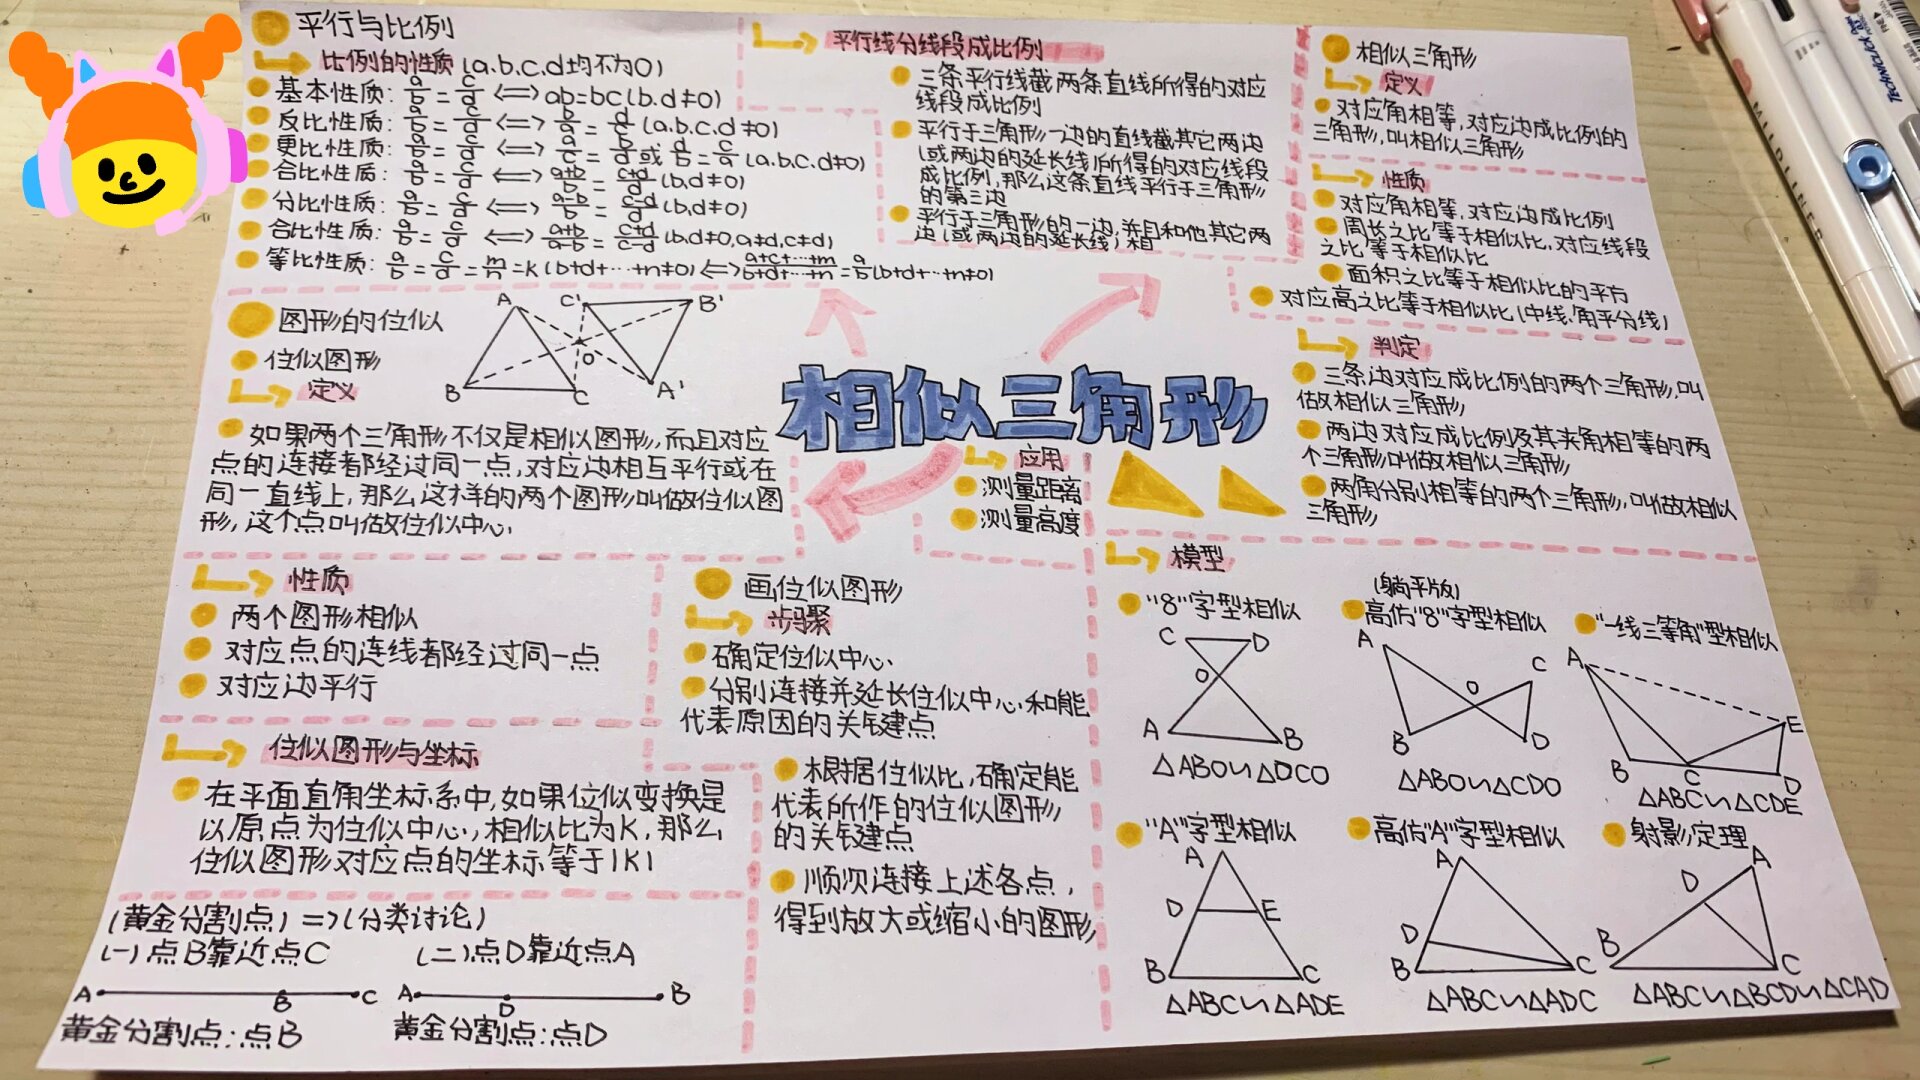 平行与比例
比例的性质(a.b.c.d均不为0)
基本性质: a/b = c/d <=> ab=bc(b.d≠0)
反比性质: a/b = c/d <=> b/a = d/c (a.b.c.d≠0)
更比性质: a/b = c/d <=> a/c = b/d 或 d/b = c/a (a.b.c.d≠0)
合比性质: a/b = c/d <=> a+b/b = c+d/d (b.d≠0)
分比性质: a/b = c/d <=> a-b/b = c-d/d (b.d≠0)
合比性质: a/b = c/d <=> a+b/a-b = c+d/c-d (b.d≠0,a≠d,c≠d)
等比性质: a/b = c/d = m/n =k(b+d+…+n≠0) <=> a+c+…+m/b+d+…+n = a/b(b+d+…+n≠0)
平行线分线段成比例
三条平行线截两条直线所得的对应
线段成比例
平行于三角形一边的直线截其它两边
(或两边的延长线)所得的对应线段
成比例,那么这条直线平行于三角形
的第三边
平行于三角形的一边,并且和他其它两
边(或两边的延长线)相
相似三角形
定义
对应角相等,对应边成比例的
三角形,叫相似三角形
性质
对应角相等,对应边成比例
周长之比等于相似比,对应线段
之比等于相似比
面积之比等于相似比的平方
对应高之比等于相似比(中线、角平分线)
判定
三条边对应成比例的两个三角形,叫
做相似三角形
两边对应成比例及其夹角相等的两
个三角形叫做相似三角形
两角分别相等的两个三角形,叫做相似
三角形
图形的位似
位似图形
定义
A C' B'
O
B C A'
如果两个三角形不仅是相似图形,而且对应
点的连接都经过同一点,对应边相互平行或在
同一直线上,那么这样的两个图形叫做位似图
形,这个点叫做位似中心.
相似三角形
应用
测量距离
测量高度
性质
两个图形相似
对应点的连线都经过同一点
对应边平行
位似图形与坐标
在平面直角坐标系中,如果位似变换是
以原点为位似中心,相似比为K,那么
位似图形对应点的坐标等于|K|
画位似图形
步骤
确定位似中心
分别连接并延长位似中心和能
代表原因的关键建点
根据位似比,确定能
代表所作的位似图形
的关键建点
顺次连接上述各点,
得到放大或缩小的图形
(黄金分割点)=>(分类讨论)
(一)点B靠近点C
A B C
黄金分割点:点B
(二)点D靠近点A
A D B
黄金分割点:点D
模型
"8"字型相似
C D
O
A B
△ABO∽△DCO
(躺平版)
高仿"8"字型相似
A C
O
B D
△ABO∽△CDO
"一线三等角"型相似
A E
B C D
△ABC∽△CDE
"A"字型相似
A
D E
B C
△ABC∽△ADE
高仿"A"字型相似
A
D
B C
△ABC∽△ADC
射影定理
A
D
B C
△ABC∽△BCD∽△CAD
MILDLINER